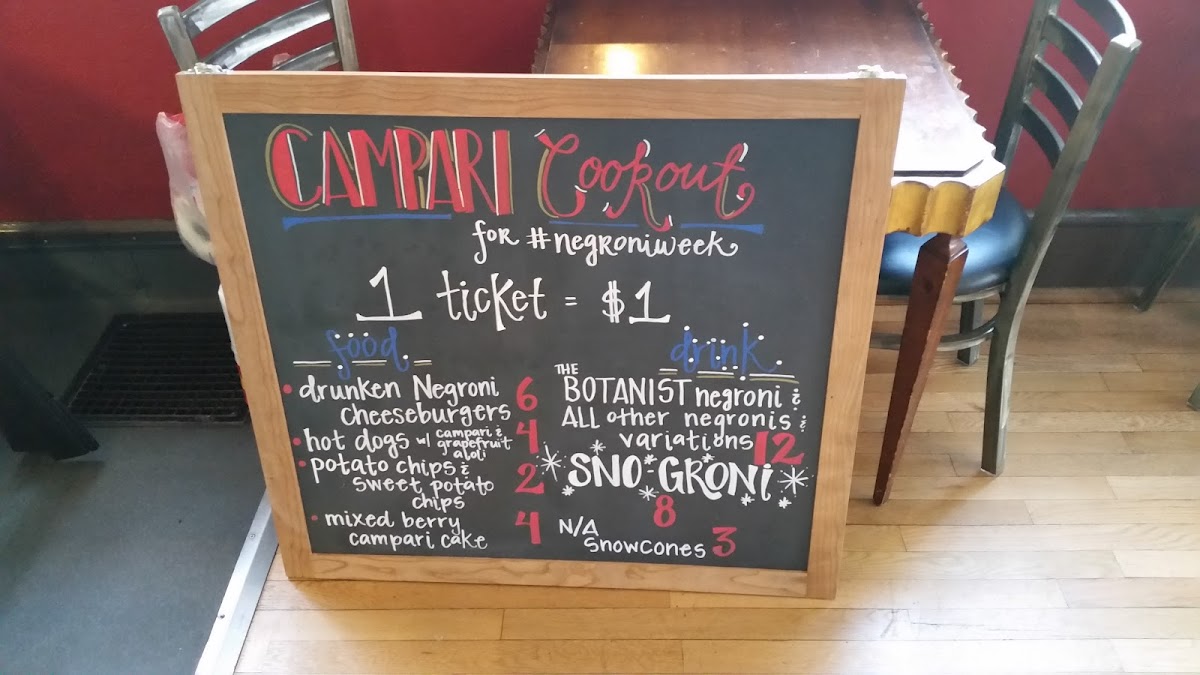 CAMPARI Cookout
for #negroniweek
1 ticket = $1
food
drunken Negroni
cheeseburgers 6
hot dogs w/ campari & grapefruit aioli 4
potato chips &
sweet potato
chips 2
mixed berry
campari cake 4
drink
THE
BOTANIST negroni &
ALL other negronis &
variations 12
SNO-GRONi
8
N/A
Snowcones 3